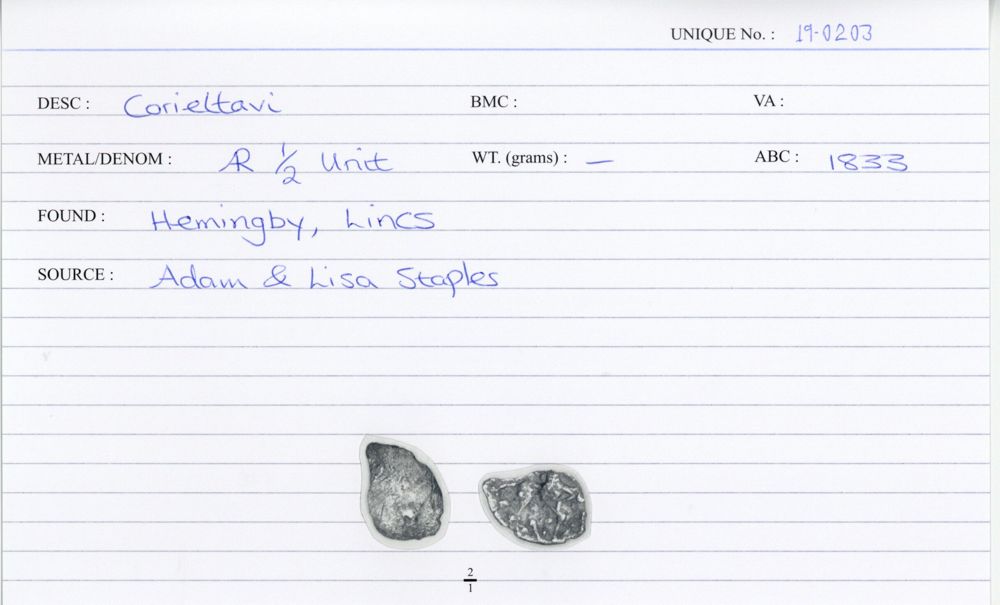 UNIQUE No. : 19-0203
DESC : Corieltavi BMC : VA :
METAL/DENOM : AR 1/2 Unit WT. (grams) : — ABC : 1833
FOUND : Hemingby, Lincs
SOURCE : Adam & Lisa Staples
2/1